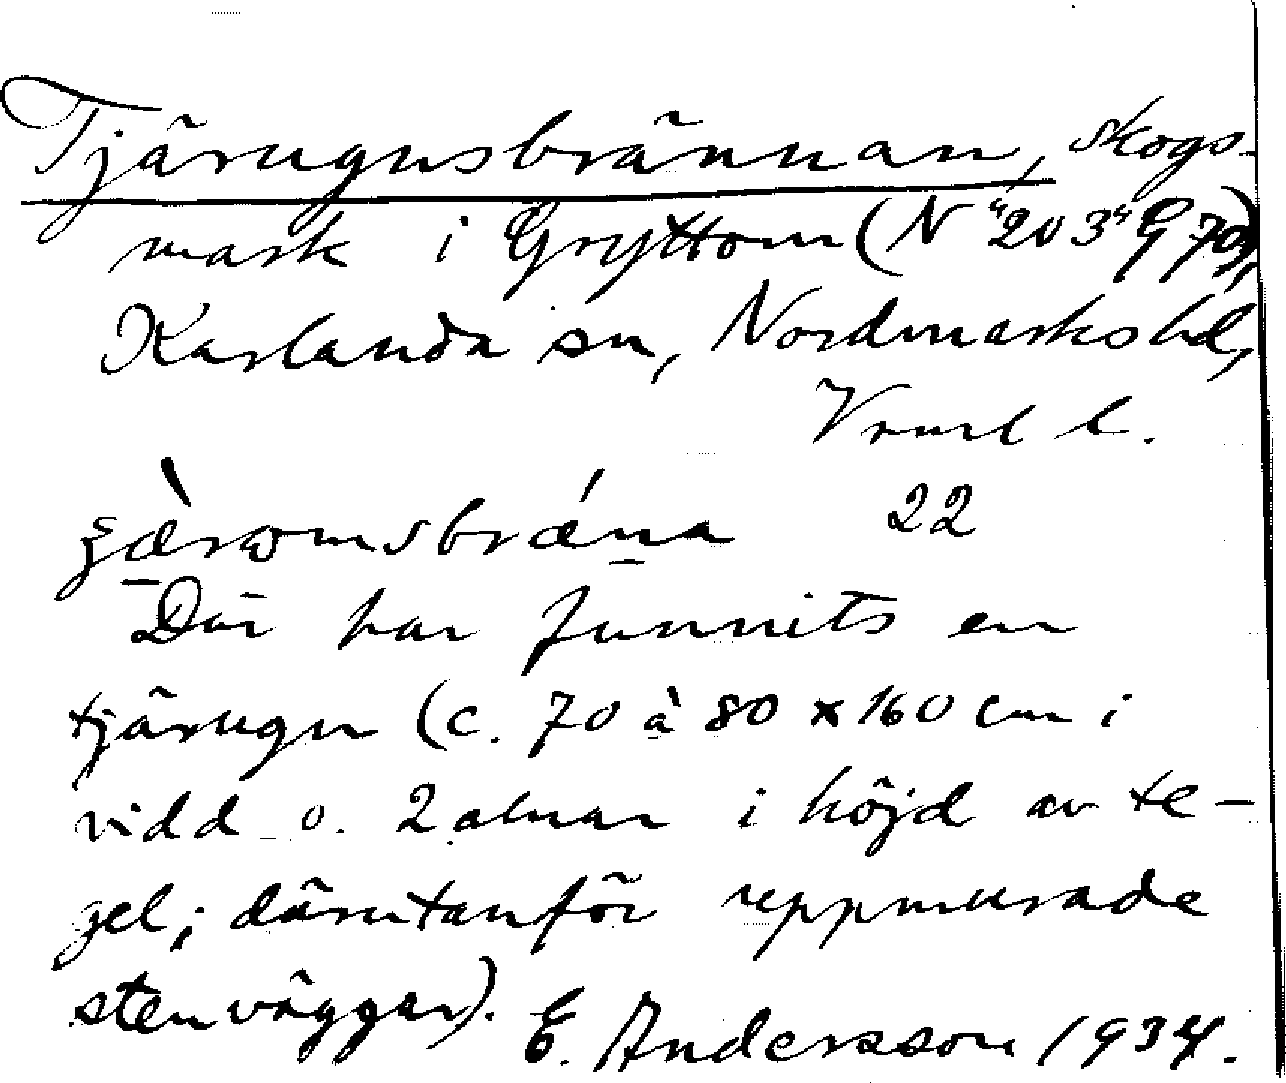 Tjärugnsbrännan, skogs-
mark i Gryttom (N "203" G 70),
Karlanda sn, Nordmarks hd,
Vrml l.
22
Där har funnits en
tjärugn (c. 70 à 80 x 160 cm i
vidd o. 2 alnar i höjd av te-
gel; därutanför uppmurade
stenväggar). E. Andersson 1934.